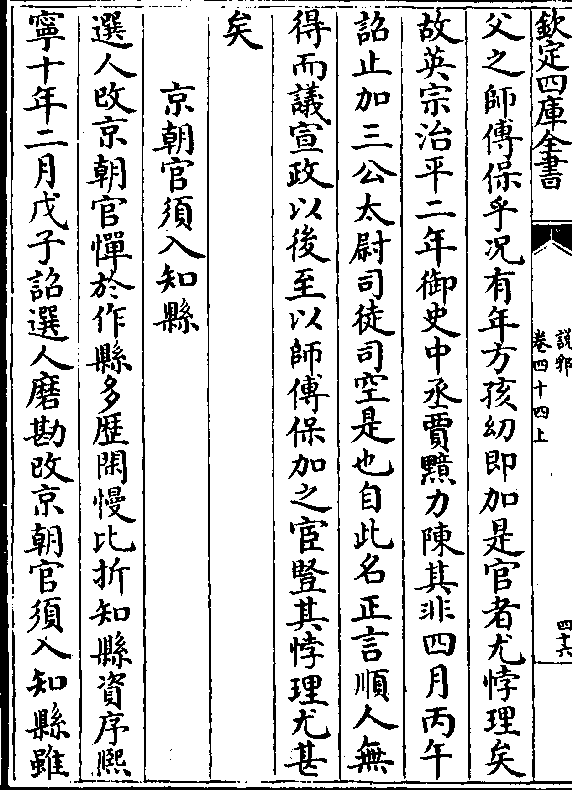 欽定四庫全書
說郛
卷四十四上
四十六
父之師傅保乎况有年方孩幼即加是官者尤悖理矣
故英宗治平二年御史中丞賈黯力陳其非四月丙午
詔止加三公太尉司徒司空是也自此名正言順人無
得而議宣政以後至以師傅保加之宦豎其悖理尤甚
矣
京朝官須入知縣
選人改京朝官憚於作縣多歴閑慢比折知縣資序熈
寧十年二月戊子詔選人磨勘改京朝官須入知縣雖